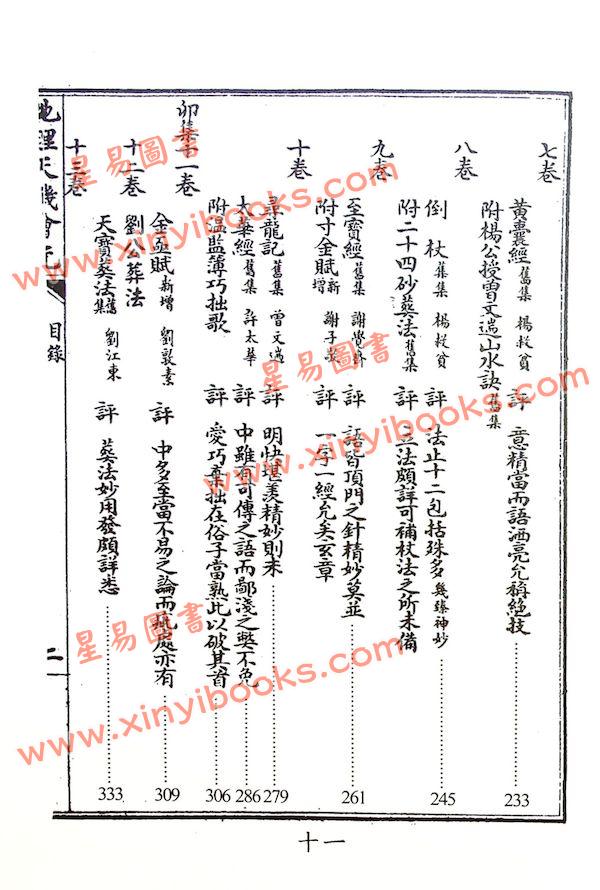 七卷
黃囊經 舊集 楊救貧 評 意精當而語洒亮允稱絕技 233
附楊公授曾文遄山水訣 舊集
八卷
倒杖 舊集 楊救貧 評 法止十二包括殊多 幾臻神妙 245
附二十四砂葬法 舊集 評 立法頗詳可補杖法之所未備
九卷
至寶經 舊集 謝覺齋 評 語皆頂門之針精妙莫並 261
附寸金賦 新增 謝子 評 一字一經允矣玄章
十卷
尋龍記 舊集 曾文遄 評 明快堪羨精妙則未 279
太華經 舊集 許太華 評 中雖有可傳之語而鄙淺之獘不免 286
附溫監簿巧拙歌 評 愛巧棄拙在俗子當熟此以破其首 306
卯集十一卷
金函賦 新增 劉敦素 評 中多至當不易之論而疵處亦有 309
十二卷
劉公葬法
十三卷
天寶葬法 舊集 劉江東 評 葬法妙用發頗詳悉 333
地理天機會元
目錄
二
十一
星易圖書
www.xinyibooks.com
星易圖書
www.xinyibooks.com
星易圖書
www.xinyibooks.com